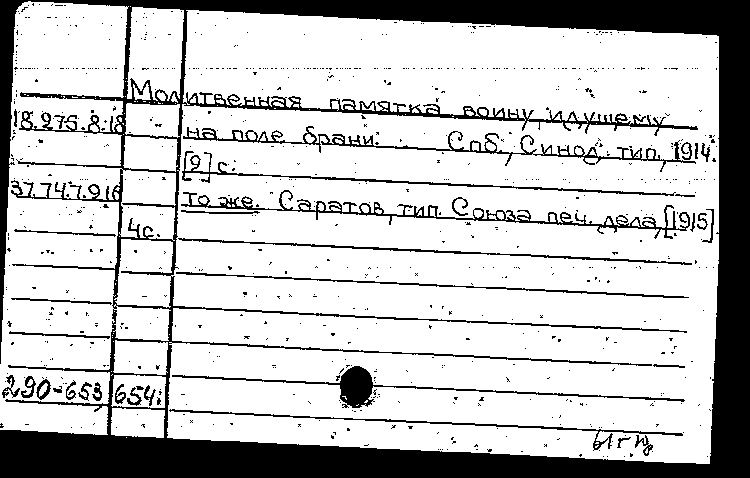 Молитвенная памятка воину, идущему
18.275.8.18 на поле брани. Спб., Синод. тип., 1914.
[2] с.
37.74.7.916 То же. Саратов, тип. Союза печ. дела, [1915]
4с.
290-653, 654.